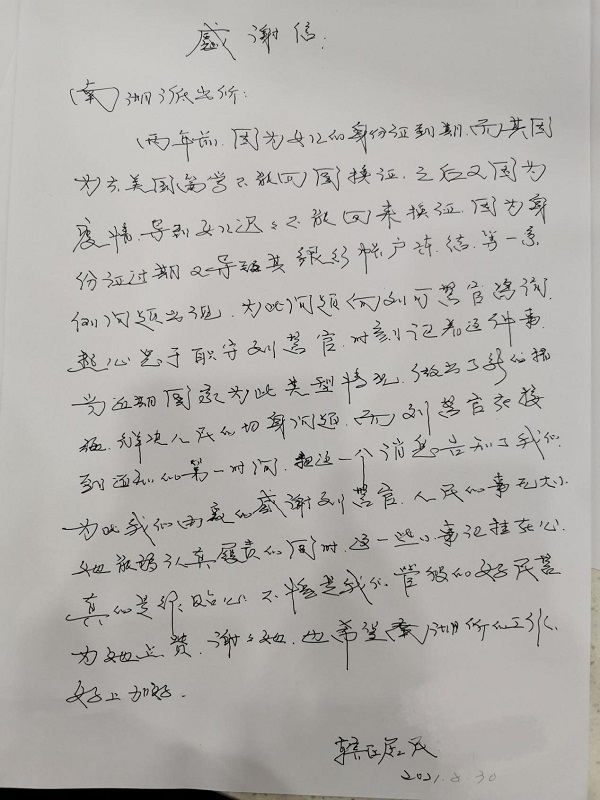 感谢信.
南湖派出所:
两年前.因为女儿的身份证到期.而其因
为在美国留学不能回国换证.之后又因为
疫情.导致女儿迟迟不能回来换证.因为身
份证过期又导致其银行帐户冻结.等一系
列问题出现.为此问题询问刘可警官
于职守刘警官.时刻记着这件事.
当近期国家为此类型情况.做出了新的措
施.解决人民的切身问题.而刘警官在接
到通知的第一时间.把这一个消息告知了我们.
为此我们由衷的感谢刘警官.人民的事无大小.
她能够认真履责的同时.这一些小事记挂在心.
真的是很贴心.不愧是我们管段的好民警
为她点赞.谢谢她.也希望南湖所的工作.
好上加好.
辖区居民
2021.8.30